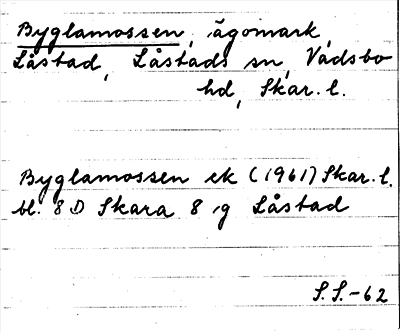 Byglamossen, ägomark,
Låstad, Låstads sn, Vadsbo
hd, Skar. l.
Byglamossen ek (1961) Skar. l.
bl. 8 D Skara 8 g Låstad
S.S.-62